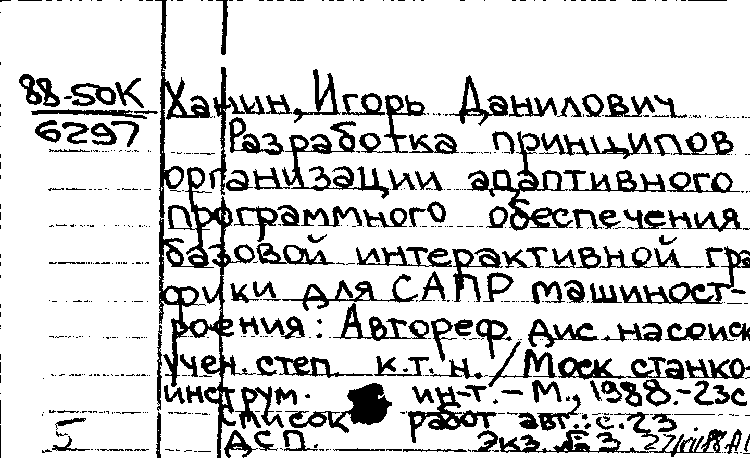 88-50К Ханин, Игорь Данилович
6297 Разработка принципов
организации адаптивного
программного обеспечения
базовой интерактивной гра
фики для САПР машиност-
роения: Автореф. дис. на соиск
учен. степ. к.т.н. / Моск станко-
инструм. ин-т. - М., 1988.-23с
Список работ авт.: с.23
5 ДСП. Экз. №3.